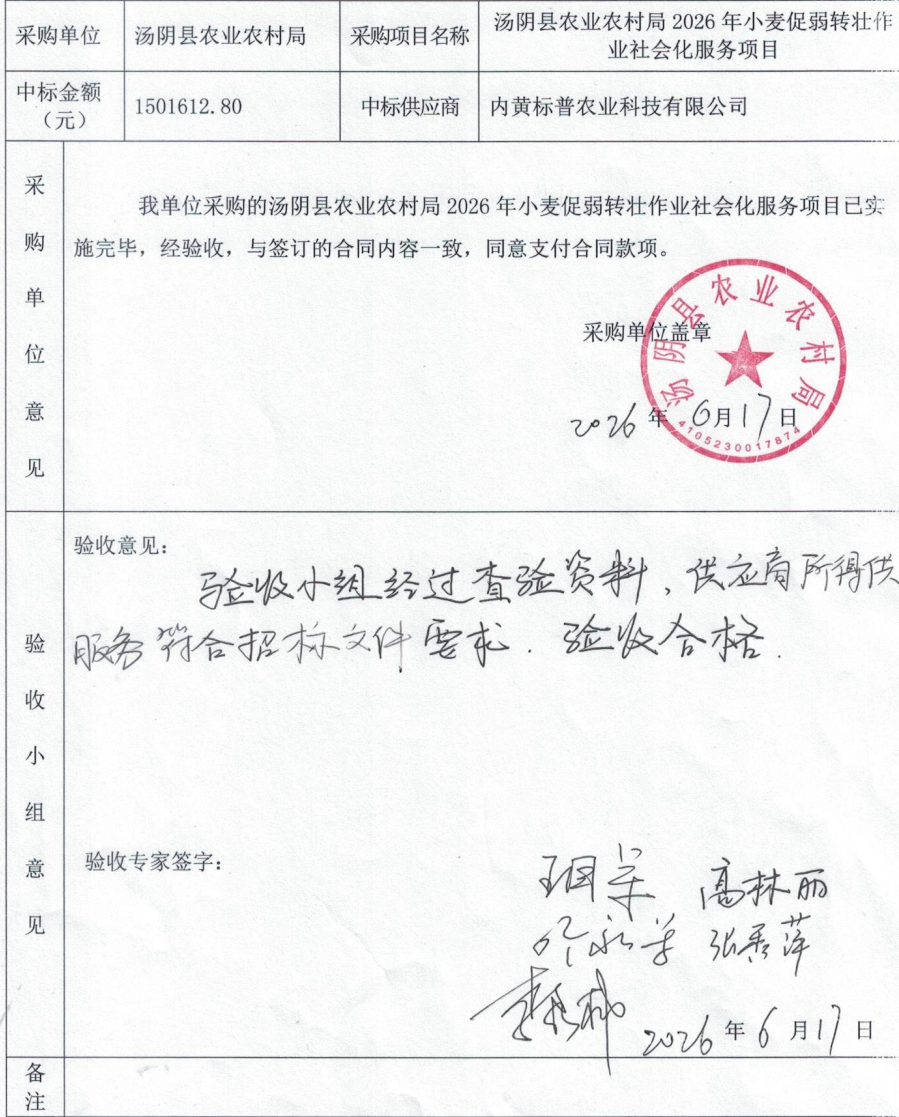 采购单位 汤阴县农业农村局 采购项目名称 汤阴县农业农村局 2026 年小麦促弱转壮作
业社会化服务项目
中标金额
（元） 1501612.80 中标供应商 内黄标普农业科技有限公司
采购单位意见
我单位采购的汤阴县农业农村局 2026 年小麦促弱转壮作业社会化服务项目已实
施完毕，经验收，与签订的合同内容一致，同意支付合同款项。
采购单位盖章
汤阴县农业农村局
4105230017874
2026 年 6月17日
验收小组意见
验收意见：
验收小组经过查验资料，供应商所得供
服务符合招标文件要求．验收合格．
验收专家签字：
高林丽
2026 年 6 月 17 日
备
注